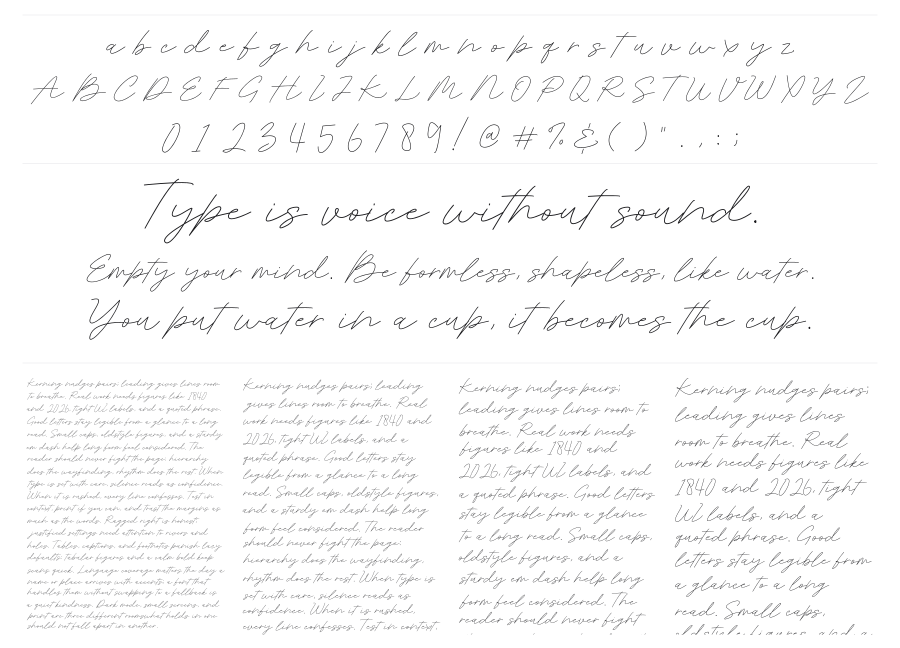 a b c d e f g h i j k l m n o p q r s t u v w x y z
A B C D E F G H I J K L M N O P Q R S T U V W X Y Z
0 1 2 3 4 5 6 7 8 9 ! @ # % & ( ) " . , : ;
Type is voice without sound.
Empty your mind. Be formless, shapeless, like water.
You put water in a cup, it becomes the cup.
Kerning nudges pairs; leading gives lines room
to breathe. Real work needs figures like 1840
and 2026, tight UI labels, and a quoted phrase.
Good letters stay legible from a glance to a long
read. Small caps, oldstyle figures, and a sturdy
em dash help long form feel considered. The
reader should never fight the page: hierarchy
does the wayfinding, rhythm does the rest When
type is set with care, silence reads as confidence.
When it is rushed, every line confesses. Test in
context, print if you can, and trust the margins as
much as the words. Ragged right is honest,
justified settings need attention to rivers and
holes. Tables, captions, and footnotes punish lazy
defaults, tabular figures and a calm bold keep
scans quick. Language coverage matters the day a
name or place arrives with accents; a font that
handles them without swapping to a fallback is
a quiet kindness. Dark mode, small screens, and
print are three different rooms what holds in one
should not fall apart in another.
Kerning nudges pairs; leading
gives lines room to breathe. Real
work needs figures like 1840 and
2026, tight UI labels, and a
quoted phrase. Good letters stay
legible from a glance to a long
read. Small caps, oldstyle figures,
and a sturdy em dash help long
form feel considered. The reader
should never fight the page:
hierarchy does the wayfinding,
rhythm does the rest When type is
set with care, silence reads as
confidence. When it is rushed,
every line confesses. Test in context,
Kerning nudges pairs;
leading gives lines room to
breathe. Real work needs
figures like 1840 and
2026, tight UI labels, and
a quoted phrase. Good letters
stay legible from a glance
to a long read. Small caps,
oldstyle figures, and a
sturdy em dash help long
form feel considered. The
reader should never fight
Kerning nudges pairs;
leading gives lines
room to breathe. Real
work needs figures like
1840 and 2026, tight
UI labels, and a
quoted phrase. Good
letters stay legible from
a glance to a long
read. Small caps,
oldstyle figures, and a